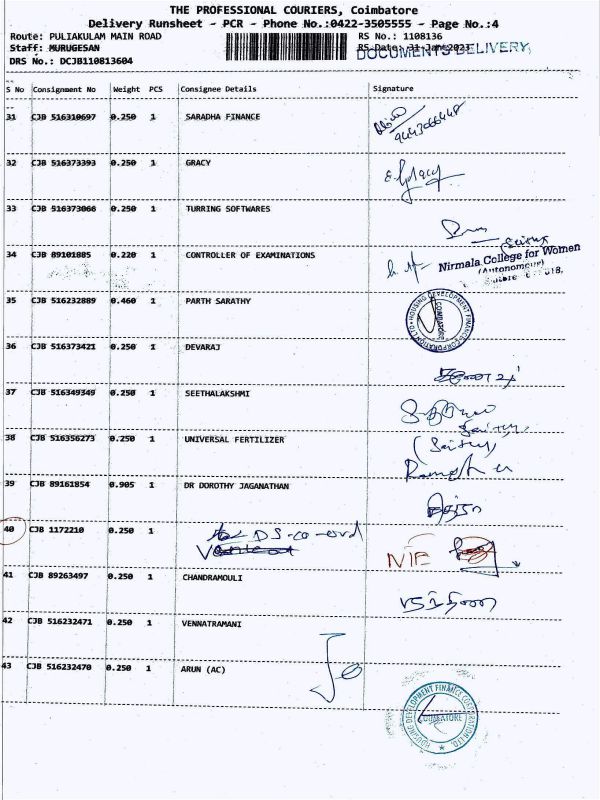 THE PROFESSIONAL COURIERS, Coimbatore
Delivery Runsheet - PCR - Phone No.:0422-3505555 - Page No.:4
Route: PULIAKULAM MAIN ROAD RS No.: 1108136
Staff: MURUGESAN RS Date: 31-Jan-2023
DOCUMENTS DELIVERY
DRS No.: DCJB110813604
S No Consignment No Weight PCS Consignee Details Signature
31 CJB 516310697 0.250 1 SARADHA FINANCE
32 CJB 516373393 0.250 1 GRACY
33 CJB 516373066 0.250 1 TURRING SOFTWARES
34 CJB 89101885 0.220 1 CONTROLLER OF EXAMINATIONS
Nirmala College for Women
(Autonomous)
35 CJB 516232889 0.460 1 PARTH SARATHY
HOUSING DEVELOPMENT FINANCE CORPORATION LTD.
COIMBATORE
36 CJB 516373421 0.250 1 DEVARAJ
37 CJB 516349349 0.250 1 SEETHALAKSHMI
38 CJB 516356273 0.250 1 UNIVERSAL FERTILIZER
39 CJB 89161854 0.905 1 DR DOROTHY JAGANATHAN
40 CJB 1172210 0.250 1
41 CJB 89263497 0.250 1 CHANDRAMOULI
42 CJB 516232471 0.250 1 VENNATRAMANI
43 CJB 516232470 0.250 1 ARUN (AC)
HOUSING DEVELOPMENT FINANCE CORPORATION LTD.
COIMBATORE